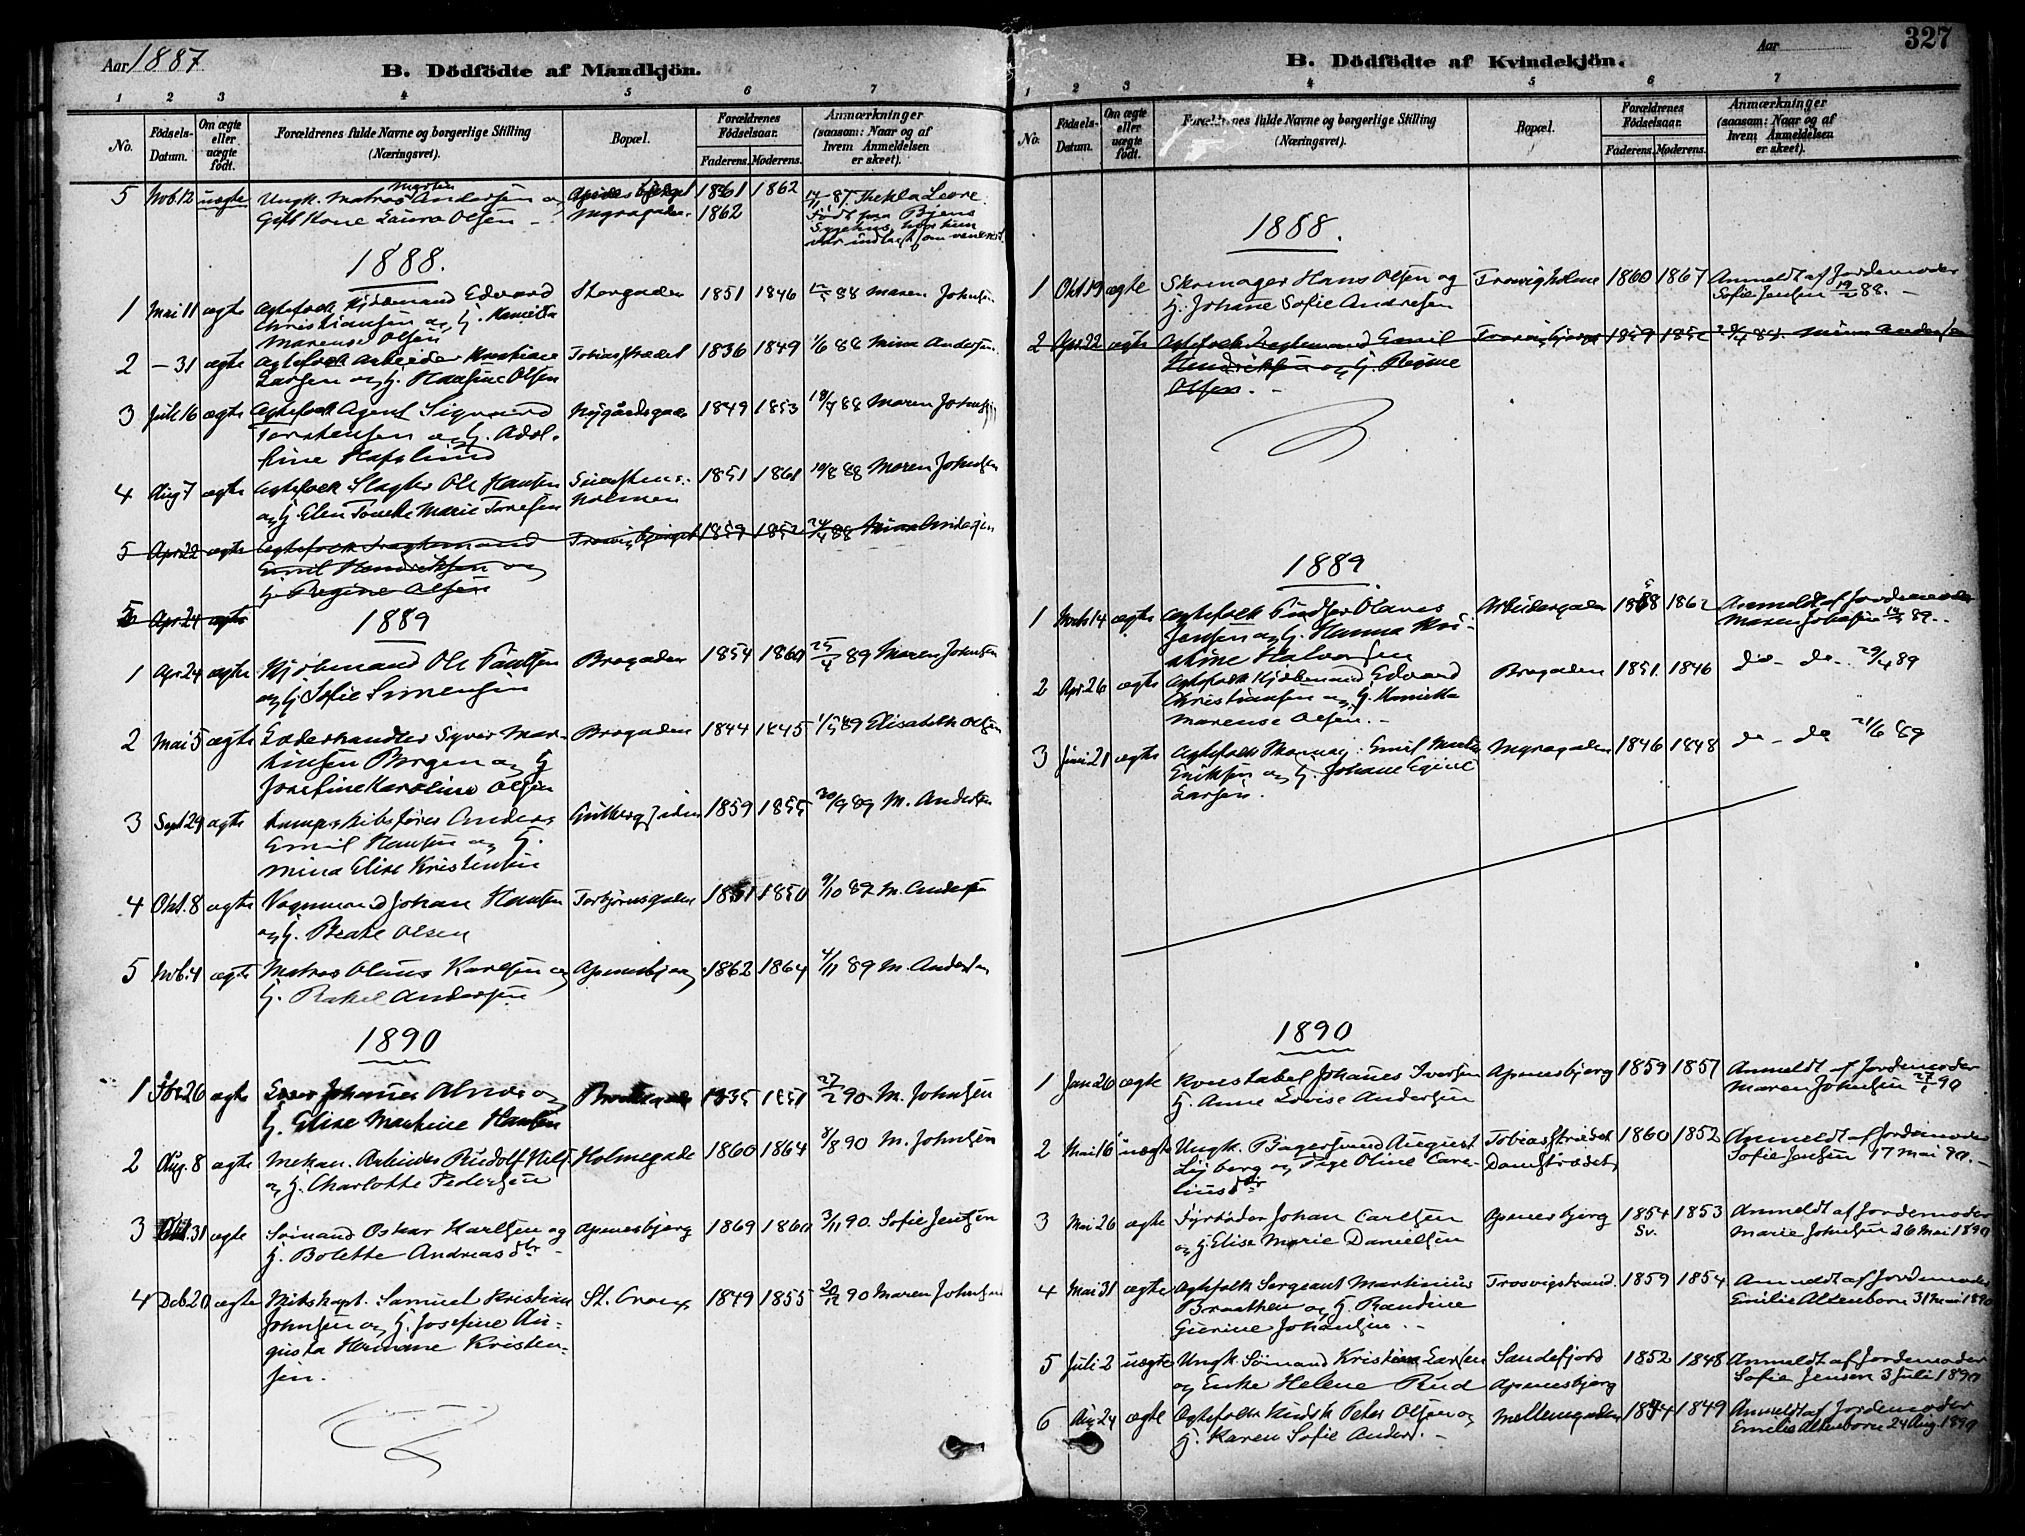 Aar 1887
B. Dödfödte af Mandkjön.
1 2 3 4 5 6 7
No.
Födsels-Datum.
Om ægte eller uægte född.
Forældrenes fulde Navne og borgerlige Stilling
(Næringsvei).
Bopæl.
Forældrenes Födselsaar.
Faderens. Moderens.
Anmærkninger
(saasom: Naar og af
hvem Anmeldelsen
er skeet).
5 Nov. 12 uægte Ungk. Matros Martin Andersen og 1861 1862 14/11 87. Thekla Leere.
Gift Kone Laura Olsen - Myragaden 1862 Født paa Byens
Sygehus, hvor hun
var indlagt som
1888.
1 Mai 11 ægte Ægtefolk Edvard Storgaden 1851 1846 88 Maren Johnsen
Christiansen og H.
Marense Olsen
2 - 31 ægte Ægtefolk Arbeider Kristian Tobiasstrædet 1836 1849 1/6 88 Mina Andersen
Larsen og H. Hansine Olsen
3 Juli 16 ægte Ægtefolk Agent Sigvard Nygårdsgaden 1849 1853 18/7 88 Maren Johnsen
Torstensen og H. Adol-
fine Hafslund
4 Aug 7 ægte Ægtefolk Slagter Ole Hansen 1851 1861 10/8 88 Maren Johnsen
og H. Elen Marie holmen
5 Apr. 22 ægte Ægtefolk Fragtemand Trosvigbjerget 1859 1852 24/4 88 Mina Andersen
Emil Hendriksen og
H. Regine Olsen
5 Apr. 24 ægte
1889
1 Apr. 24 ægte Ole Paulsen Brogaden 1854 1860 25/4 89 Maren Johnsen
og H. Sofie Simensen
2 Mai 5 ægte Læderhandler Syver Mar- Brogaden 1844 1845 89 Elisabeth Olsen
tinsen Borgen og H
Josefine Karoline Olsen
3 Sept 29 ægte Anders 1859 1855 30/9 89 M. Andersen
Emil Hansen og H.
Mina Elise Kristensen
4 Okt. 8 ægte Vognmand Johan Hansen Torbjørnsgaden 1851 1850 9/10 89 M. Andersen
og H. Beate Olsen
5 Nvb. 4 ægte Matros Olaus Karlsen og Apenesbjerg 1862 1864 4/11 89 M. Andersen
H. Rakel Andersen
1890
1 Fbr. 26 ægte Johannes og 1835 1851 27/2 90 M. Johnsen
H. Elise Martine Hansen
2 Aug. 8 ægte Mekan. Arbeider Rudolf Holmegade 1860 1864 8/8 90 M. Johnsen
og H. Charlotte Pedersen
3 Okt. 31 ægte Sömand Oskar Karlsen og Apenesbjerg 1869 1860 3/11 90. Sofie Jensen
H. Bolette Andreasdtr -
4 Dcb. 20 ægte Skibskapt. Samuel Kristian St. Croix 1849 1855 20/12 90 Maren Johnsen
Johnsen og H. Josefine Au-
gusta Hermane Kristen-
sen.
327
Aar
B. Dödfödte af Kvindekjön.
1 2 3 4 5 6 7
No.
Födsels-Datum.
Om ægte eller uægte född.
Forældrenes fulde Navne og borgerlige Stilling
(Næringsvei).
Bopæl.
Forældrenes Födselsaar.
Faderens. Moderens.
Anmærkninger
(saasom: Naar og af
hvem Anmeldelsen
er skeet).
1888.
1 Okt 19 ægte Skomager Hans Olsen og Trosvigholme 1860 1867 Anmeldt af Jordemoder
H. Johane Sofie Andresen Sofie Jensen 88. -
2 Apr. 22 ægte Ægtefolk Fragtemand Emil Trosvigbjerget 1859 1852 24/4 88. Mina Andersen
Hendriksen og H. Regine
Olsen. -
1889
1 Marts 14 ægte Ægtefolk Olaves Arbeidergaden 1858 1862 Anmeldt af Jordemoder
Jensen og H. Hanna Kri- Maren Johnsen 89. -
stine Halvorsen
2 Apr. 26 ægte Ægtefolk Edvard Brogaden 1851. 1846 do - do - 29/4 89
Christiansen og H.
Marense Olsen. -
3 Juni 21 ægte Ægtefolk Emil Martin Myragaden 1846 1848 do - do 21/6 89
Eriksen og H. Johane
Larsen.
1890
1 Jan 26 ægte Konstabel Johanes Iversen Apenesbjerg 1859 1857 Anmeldt af Jordemoder
H. Anne Lovise Andersen Maren Johnsen 27/1 90
2 Mai 16 uægte Ungk. Bagersvend August Tobiasstrædet 1860 1852 Anmeldt af Jordemoder
og Pige Oline Core- Damstrædet Sofie Jensen 17 Mai 90. -
liusdtr
3 Mai 26 ægte Fyrböder Johan Carlsen Apenesbjerg 1854 1853 Anmeldt af Jordemoder
og H. Elise Marie Danielsen Sv. Marie Johnsen 26 Mai 1890
4 Mai 31 ægte Ægtefolk Sergeant Martinius Trosvigstrand. 1859 1854 Anmeldt af Jordemoder
Braathen og H. Randine Emilie Altenborn 31 Mai 1890
Gurine Johansen. -
5 Juli 2 uægte Ungk. Sömand Kristian Larsen Sandefjord 1852 1848 Anmeldt af Jordemoder
og Enke Helene Rud Apenesbjerg Sofie Jensen 3 Juli 1890
6 Aug 24 ægte Ægtefolk Peter Olsen og Mellemgaden 1844 1849 Anmeldt af Jordemoder
H. Karen Sofie Anders. - Emilie Altenborn 24 Aug. 1890